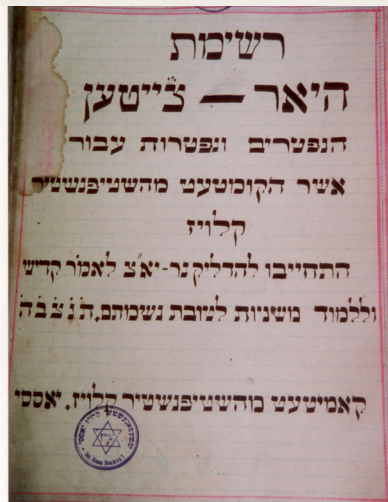 רשימת
היאר — צייטען
הנפטרים ונפטרות עבור
אשר הקומטעט מהשטיפנשטיר
קלויז
התחייבו להדליק נר-יא"צ לאמר קדיש
וללמוד משניות לטובת נשמתם. ת'נ'צ'ב'ה'
קאמיטעט מהשטיפנשטיר קלויז. יאססי